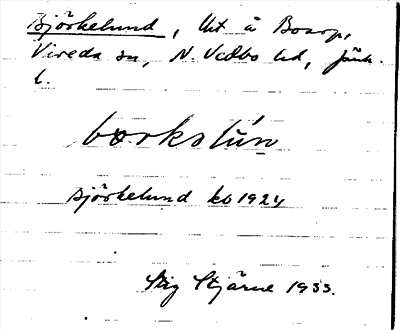 Björkelund, Ut å Boarp,
Vireda sn, N. Vedbo hd, Jönk.
l.
bœrkslún
Björkelund kb 1924
Stig Stjärne 1933.